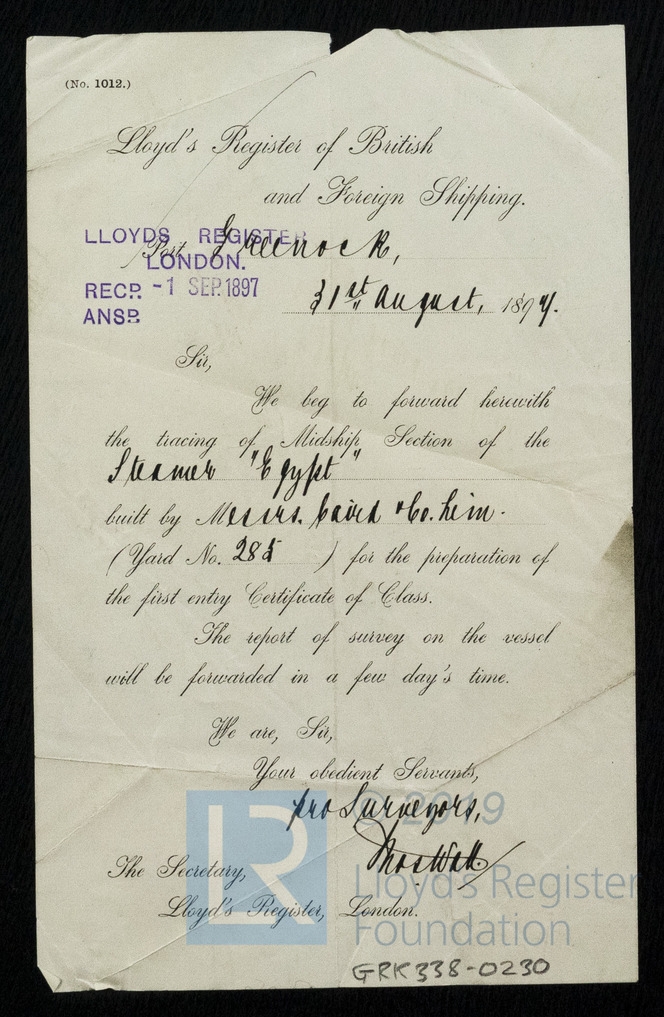 (No. 1012.)
Lloyd's Register of British
and Foreign Shipping.
LLOYDS REGISTER
Port Greenock,
LONDON.
RECD. -1 SEP. 1897
ANSD.
31st August, 1897.
Sir,
We beg to forward herewith
the tracing of Midship Section of the
Steamer "Egypt"
built by Messrs. Caird & Co. Lim.
(Yard No. 285 ) for the preparation of
the first entry Certificate of Class.
The report of survey on the vessel
will be forwarded in a few day's time.
We are, Sir,
Your obedient Servants,
pro Surveyors,
© 2019
The Secretary,
Lloyd's Register, London.
LR
Lloyd's Register
Foundation
GRK338-0230